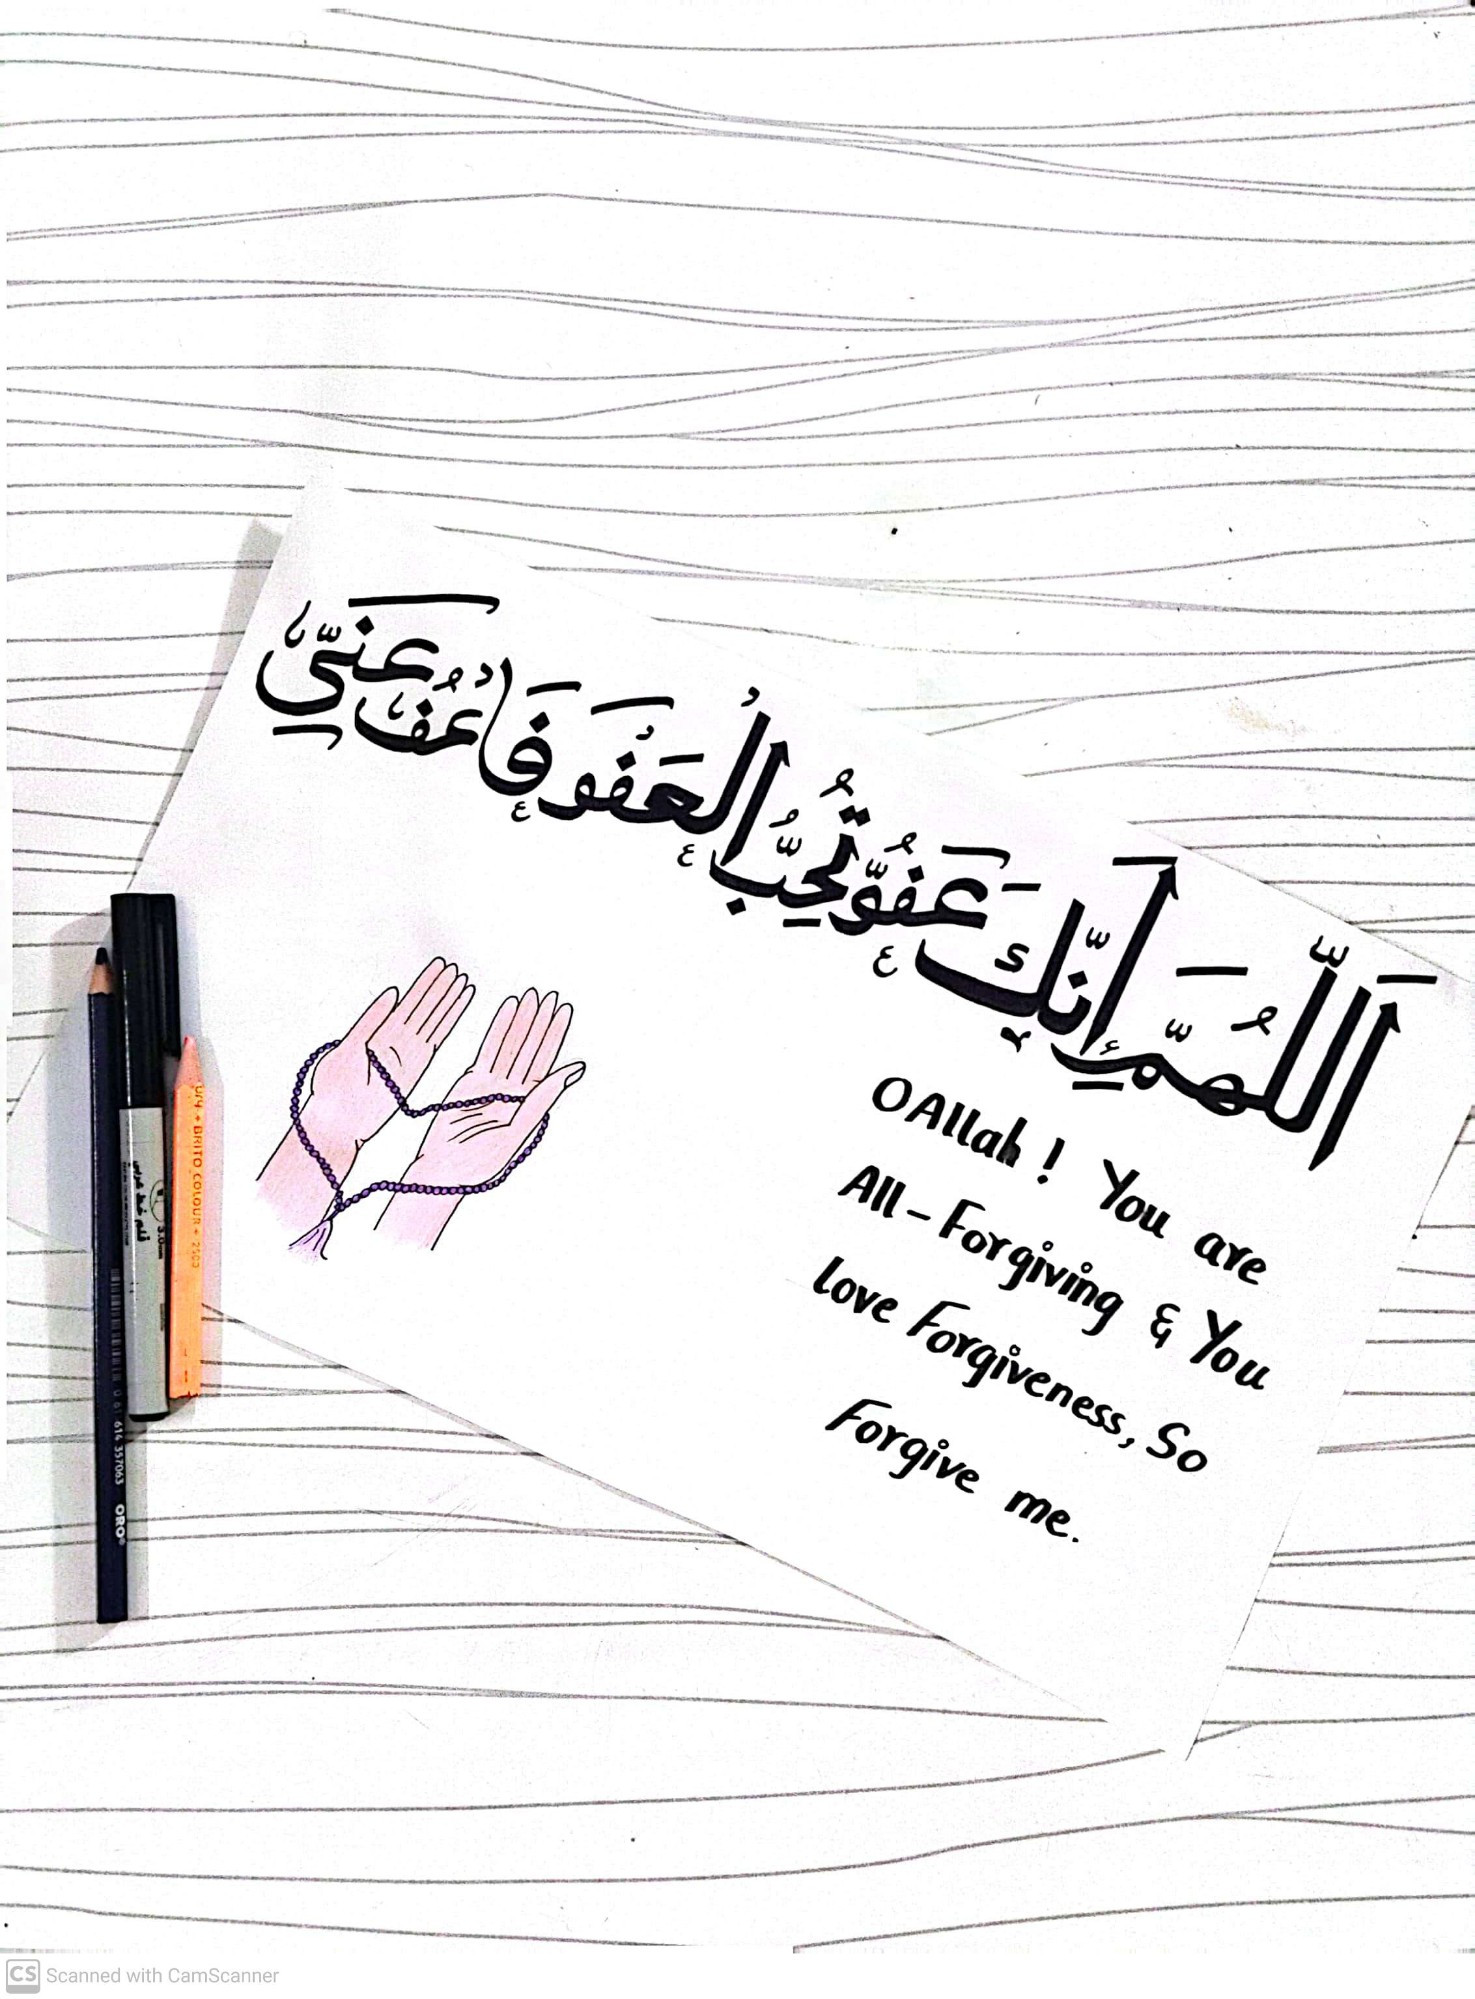 اَللّٰهُمَّ إِنَّكَ عَفُوٌّ تُحِبُّ الْعَفْوَ فَاعْفُ عَنِّي
O Allah! You are
All-Forgiving & You
love Forgiveness, So
Forgive me.
BRITO COLOUR
3.0mm
614 357063 ORO
CS Scanned with CamScanner